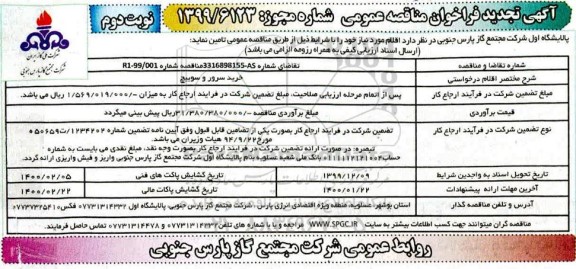 آگهی تجدید فراخوان مناقصه عمومی شماره مجوز: ۱۳۹۹/۶۱۲۳
نوبت دوم
شرکت ملی گاز ایران
شرکت مجتمع گاز پارس جنوبی
پالایشگاه اول شرکت مجتمع گاز پارس جنوبی در نظر دارد اقلام مورد نیاز خود را با شرایط ذیل از طریق مناقصه عمومی تامین نماید:
(ارسال اسناد ارزیابی کیفی به همراه رزومه الزامی می باشد)
شماره تقاضا و مناقصه
تقاضای شماره 3316898155-AS مناقصه شماره R1-99/001
شرح مختصر اقلام درخواستی
خرید سرور و سوییچ
مبلغ تضمین شرکت در فرآیند ارجاع کار
پس از اتمام مرحله ارزیابی صلاحیت، مبلغ تضمین شرکت در فرآیند ارجاع کار به میزان /۱/۵۶۹/۰۱۹/۰۰۰ ریال می باشد.
قیمت برآوردی
مبلغ برآوردی مناقصه /۳۱/۳۸۰/۳۸۰/۰۰۰ ریال پیش بینی میگردد
نوع تضمین شرکت در فرآیند ارجاع کار
تضمین شرکت در فرایند ارجاع کار بصورت یکی از تضامین قابل قبول وفق آیین نامه تضمین شماره ۱۲۳۴۰۲/ت۵۰۶۵۹ه
مورخ ۹۴/۹/۲۲ هیات وزیران می باشد.
تبصره: در صورت ارائه تضمین شرکت در فرایند ارجاع کار بصورت وجه نقد، مبلغ نقدی می بایست به شماره
بانک ملی شعبه عسلویه بنام پالایشگاه اول شرکت مجتمع گاز پارس جنوبی واریز و فیش واریزی ارائه گردد.
تاریخ تحویل اسناد به واجدین شرایط
۱۳۹۹/۱۲/۰۹
تاریخ گشایش پاکات های فنی
۱۴۰۰/۰۲/۰۵
آخرین مهلت ارائه پیشنهادات
۱۴۰۰/۰۱/۲۲
تاریخ گشایش پاکات مالی
۱۴۰۰/۰۲/۲۲
آدرس و تلفن مناقصه گذار
استان بوشهر، عسلویه، منطقه ویژه اقتصادی انرژی پارس، شرکت مجتمع گاز پارس جنوبی، پالایشگاه اول
مناقصه گران میتوانند جهت کسب اطلاعات بیشتر به سایت WWW.SPGC.IR مراجعه و یا با شماره های تلفن ۰۷۷۳۱۳۱۴۲۳۲ و ۰۷۷۳۱۳۱۴۴۷۸ تماس حاصل فرمایند.
روابط عمومی شرکت مجتمع گاز پارس جنوبی